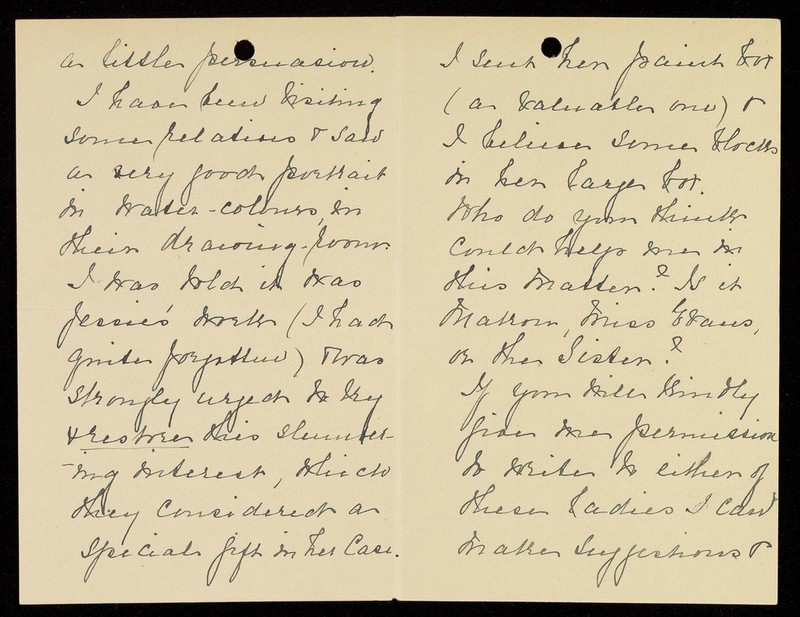 a little persuasion.
I have been visiting
some relations & saw
a very good portrait
in water-colours, in
their drawing-room.
I was told it was
Jessie's work (I had
quite forgotten) & was
strongly urged to try
& restore this slumber-
-ing interest, which
they considered a
special gift in her case.
I sent her paint box
(a valuable one) &
I believe some blocks
in her large box.
Who do you think
could help me in
this matter? Is it
Matron, Miss Evans,
or the Sister?
If you will kindly
give me permission
to write to either of
these ladies I can
make suggestions &